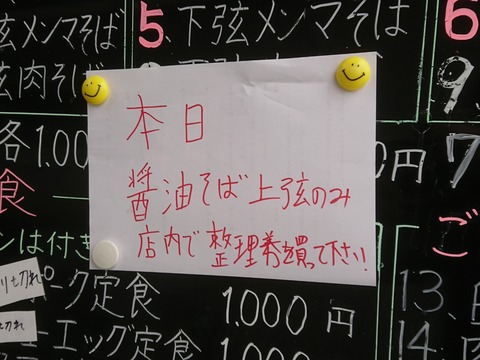 弦メンマそば
5. 下弦メンマそば
6.
弦肉そば
9.
本日
各1.00
円
7
醤油そば上弦のみ
食
店内で整理券を買って下さい!
ご
ンは付き
切れ
ポーク定食
1,000円
13.
切れ
エッグ定食
1,000
14.